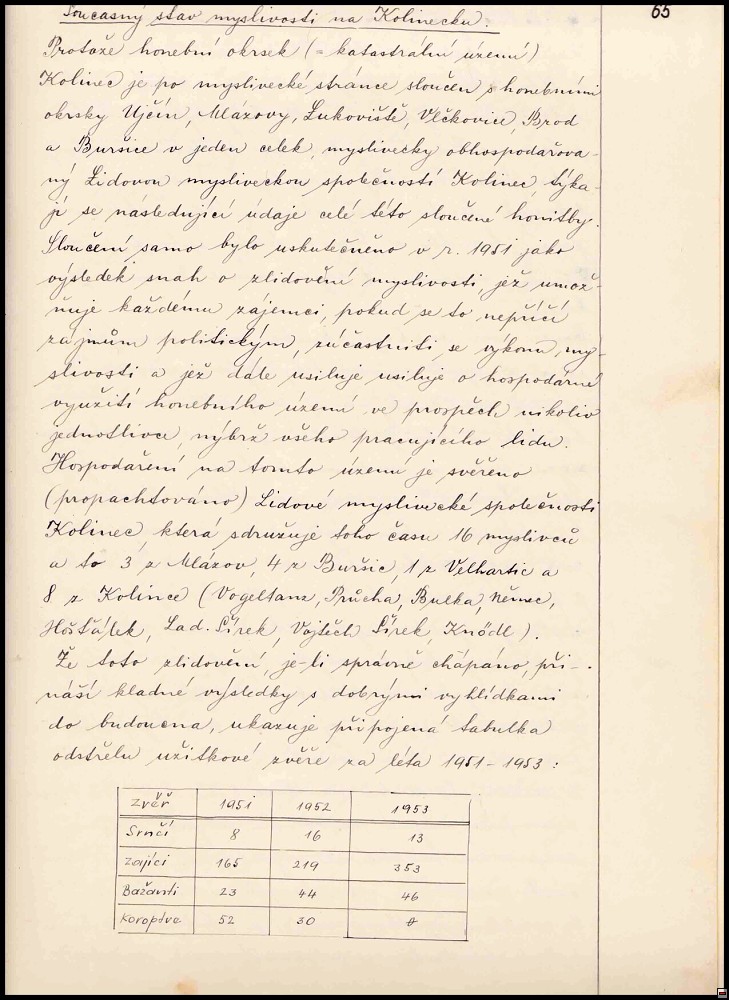 65
Současný stav myslivosti na Kolinecku:
Protože honební okrsek (= katastrální území)
Kolinec je po myslivecké stránce sloučen s honebními
okrsky Ujčín, Mlázovy, Lukoviště, Vlčkovice, Brod
a Buršice v jeden celek, myslivecky obhospodařova-
ný Lidovou mysliveckou společností Kolinec, týka-
jí se následující údaje celé této sloučené honitby.
Sloučení samo bylo uskutečněno v r. 1951 jako
výsledek snah o zlidovění myslivosti, jež umož-
ňuje každému zájemci, pokud se to nepříčí
zájmům politickým, zúčastniti se výkonu my-
slivosti a jež dále usiluje usiluje o hospodárné
využití honebního území ve prospěch nikoliv
jednotlivce, nýbrž všeho pracujícího lidu.
Hospodaření na tomto území je svěřeno
(propachtováno) Lidové myslivecké společnosti
Kolinec, která sdružuje toho času 16 myslivců
a to 3 z Mlázov, 4 z Buršic, 1 z Velhartic a
8 z Kolince (Vogeltanz, Průcha, Bulka, Němec,
Hošťálek, Lad. Šírek, Vojtěch Šírek, Knödl).
Že toto zlidovění, je-li správně chápáno, při-
náší kladné výsledky s dobrými vyhlídkami
do budoucna, ukazuje připojená tabulka
odstřelu užitkové zvěře za léta 1951 - 1953 :
Zvěř 1951 1952 1953
Srnčí 8 16 13
Zajíci 165 219 353
Bažanti 23 44 46
Koroptve 52 30 0